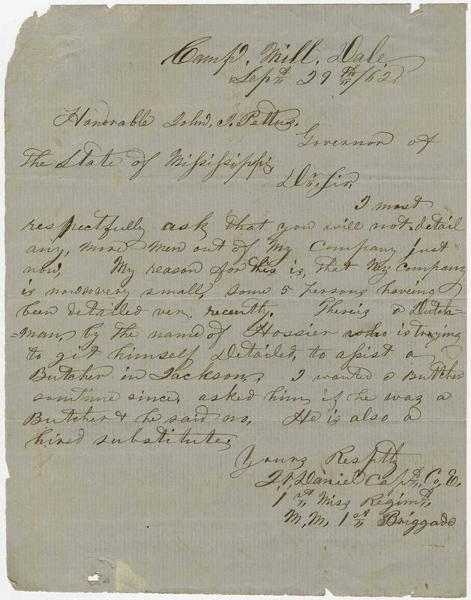 Camp, Mill, Dale
Sept 29th/62
Honorable John, J, Pettus,
Governor of
The State of Mississippi
Dr. Sir,
I most
respectfully ask that you will not detail
any, more men out of My Company just
now, My reason for this is, that My Company
is now very small, some 5 persons having
been detailed very recently. Theris a Dutch-
=man, by the name of Hossier who is trying
to git himself Detailed, to assist a
Butcher in Jackson, I wanted a Butcher
sometime since, asked him if he was a
Butcher & he said no, He is also a
hired substitute,
Yours Respty
Daniel Capt, Co, E,
1st Miss Regimt,
M, M, 1st Briggade